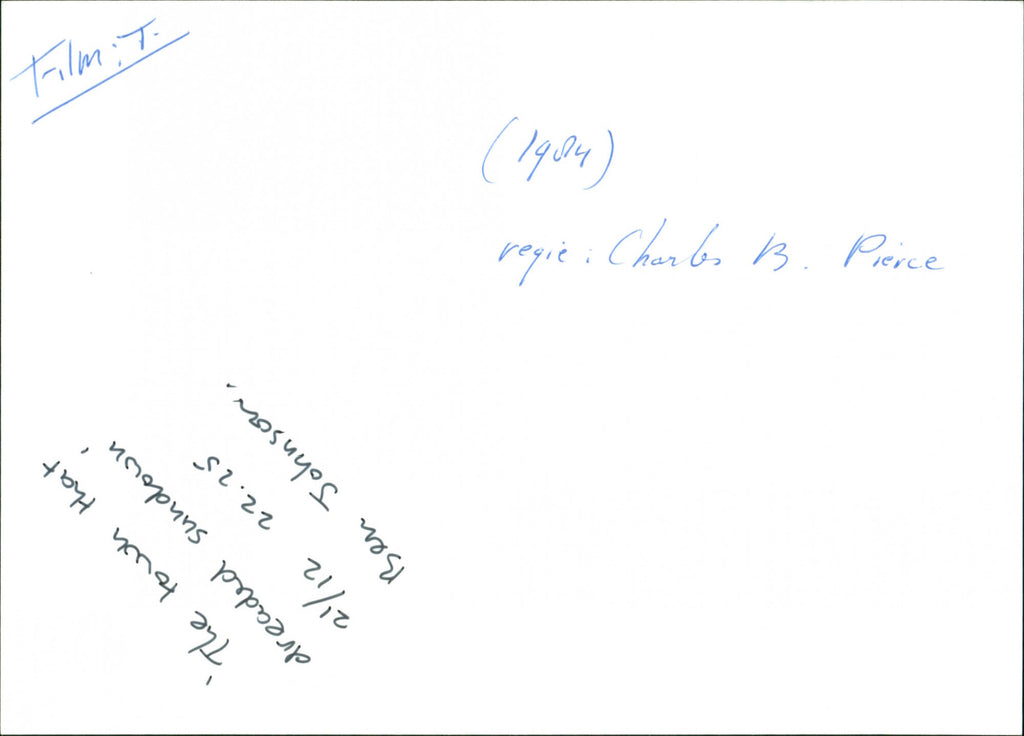 Film: T.
(1984)
regie: Charles B. Pierce
'The town that
dreaded sundown'
21/12 22.25
Ben Johnson.